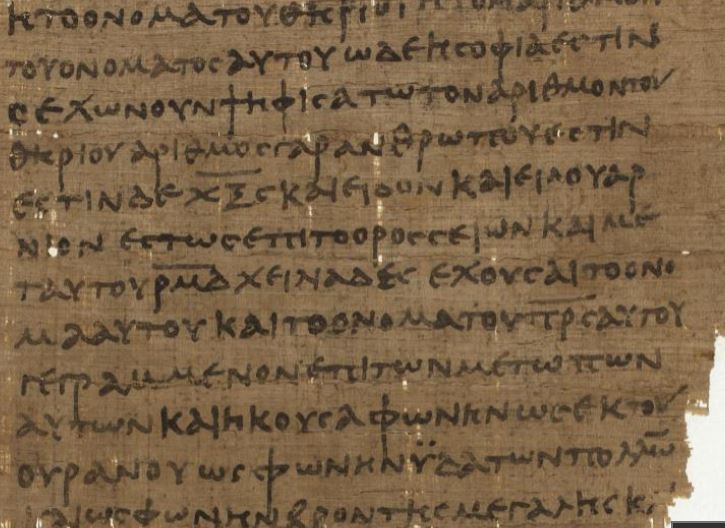 ΗΤΟΟΝΟΜΑΤΟΥΘΗΡΙΟΥΗΤΟΝΑΡΙΘΜΟΝ
ΤΟΥΟΝΟΜΑΤΟϹΑΥΤΟΥΩΔΕΗϹΟΦΙΑΕϹΤΙΝ
ΟΕΧΩΝΟΥΝΨΗΦΙϹΑΤΩΤΟΝΑΡΙΘΜΟΝΤΟΥ
ΘΗΡΙΟΥΑΡΙΘΜΟϹΓΑΡΑΝΘΡΩΠΟΥΕϹΤΙΝ
ΕϹΤΙΝΔΕΧ̅Ξ̅Ϛ̅ΚΑΙΕΙΔΟΝΚΑΙΕΙΔΟΥΑΡ
ΝΙΟΝΕϹΤΩϹΕΠΙΤΟΟΡΟϹϹΕΙΩΝΚΑΙΜΕ
ΤΑΥΤΟΥΡ̅Μ̅Δ̅ΧΕΙΛΙΑΔΕϹΕΧΟΥϹΑΙΤΟΟΝΟ
ΜΑΑΥΤΟΥΚΑΙΤΟΟΝΟΜΑΤΟΥΠ̅Ρ̅Ϲ̅ΑΥΤΟΥ
ΓΕΓΡΑΜΜΕΝΟΝΕΠΙΤΩΝΜΕΤΩΠΩΝ
ΑΥΤΩΝΚΑΙΗΚΟΥϹΑΦΩΝΗΝΩϹΕΚΤΟΥ
ΟΥΡΑΝΟΥΩϹΦΩΝΗΝΫΔΑΤΩΝΠΟΛΛΩ̅
ΚΑΙΩϹΦΩΝΗΝΒΡΟΝΤΗϹΜΕΓΑΛΗϹΚΑΙ